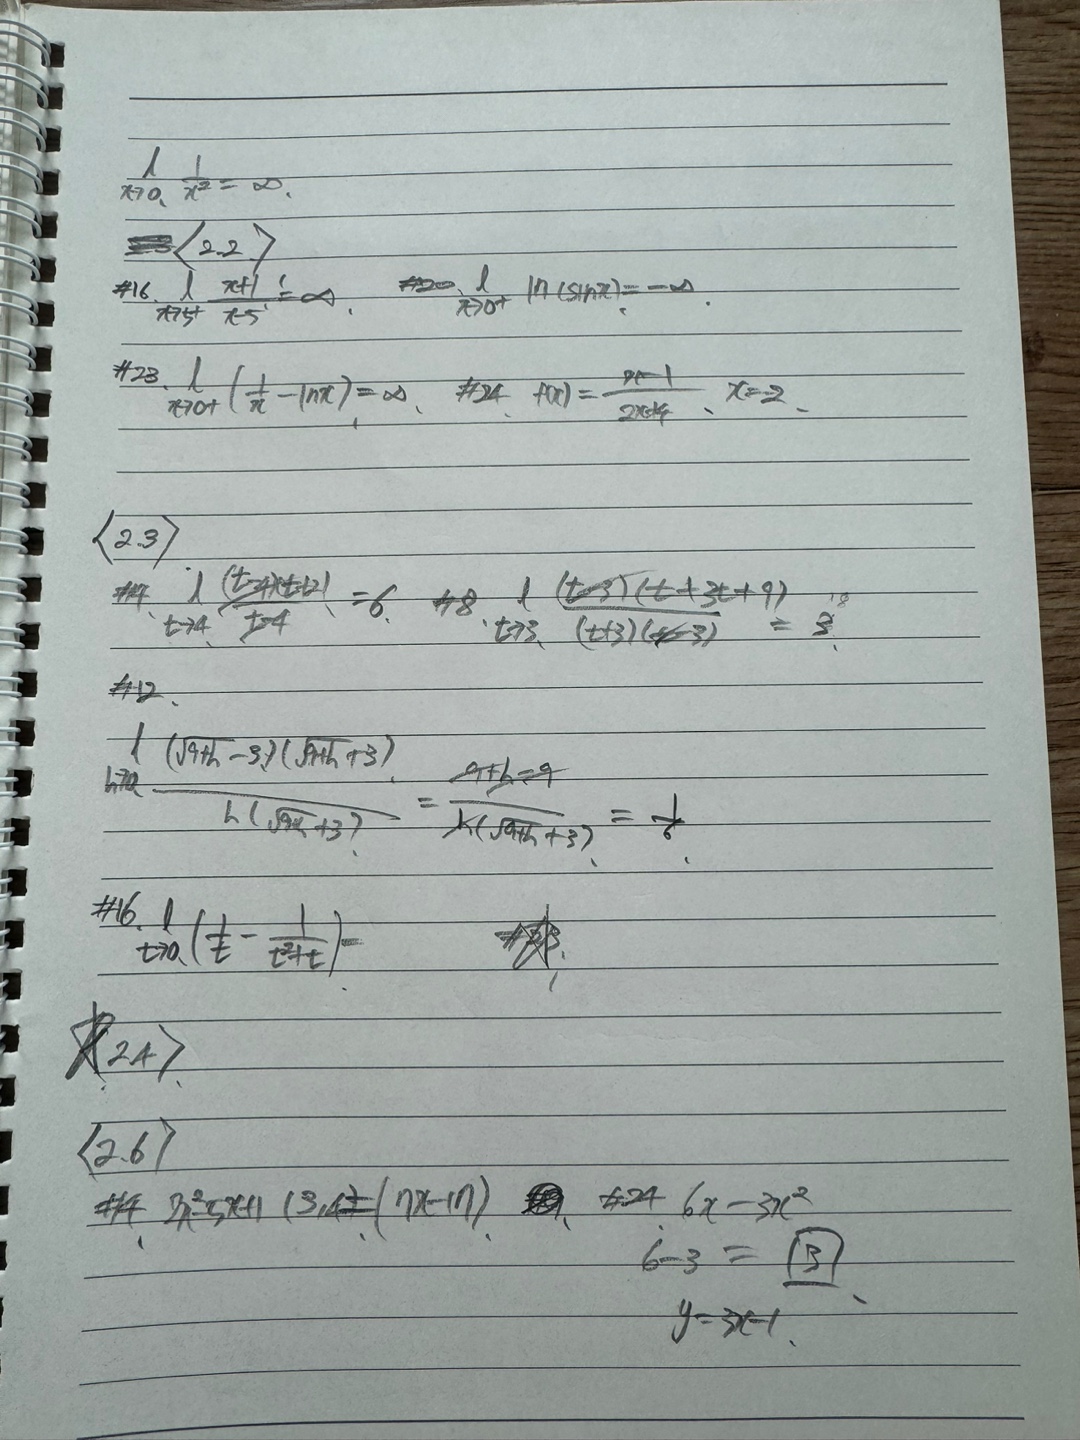 l x→0 1/x² = ∞.
<2.2>
#16. l x→5+ x+1/x-5 = ∞. #20. l x→0+ ln(sinx) = -∞.
#23. l x→0+ (1/x - lnx) = ∞. #24. f(x) = /2x+4, x=2.
<2.3>
#4. l t→4 (t-4)(t+2)/t-4 = 6. #8. l t→3 (t-3)(t+3t+9)/(t+3)(t-3) =
#12.
l h→0 (√9+h -3)(√9+h +3)/h(√9+h +3) = 9+h-9/h(√9+h +3) = 1/6.
#16. l t→0 (1/t - 1/t²+t) =
<2.4>
<2.6>
#4. (3,4) = (7x-17) #24. 6x-3x²
6-3 = 3
y=3x-1.